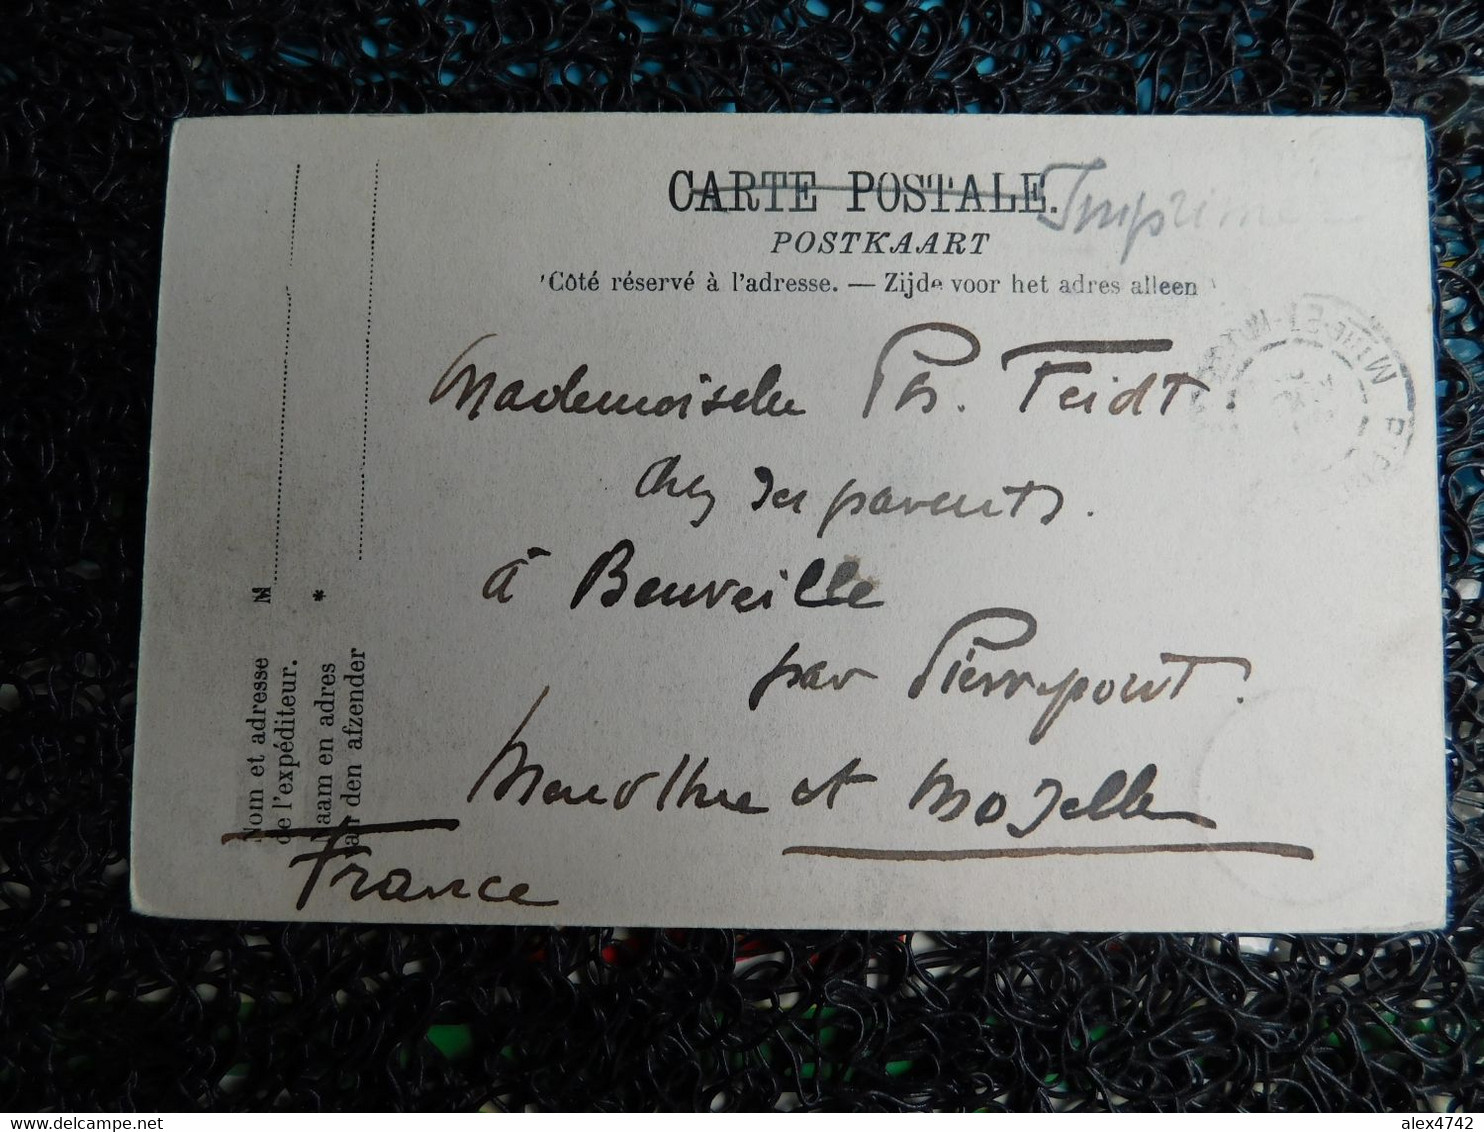 CARTE POSTALE.
Imprimé
POSTKAART
Côté réservé à l'adresse. — Zijde voor het adres alleen
Mademoiselle Ph. Feidt.
chez ses parents.
à Beuveille
par Pierrepont.
Meurthe et Moselle
France
Nom et adresse
de l'expéditeur.
M
Naam en adres
van den afzender
*
MTHE-ET-MOSELLE
alex4742